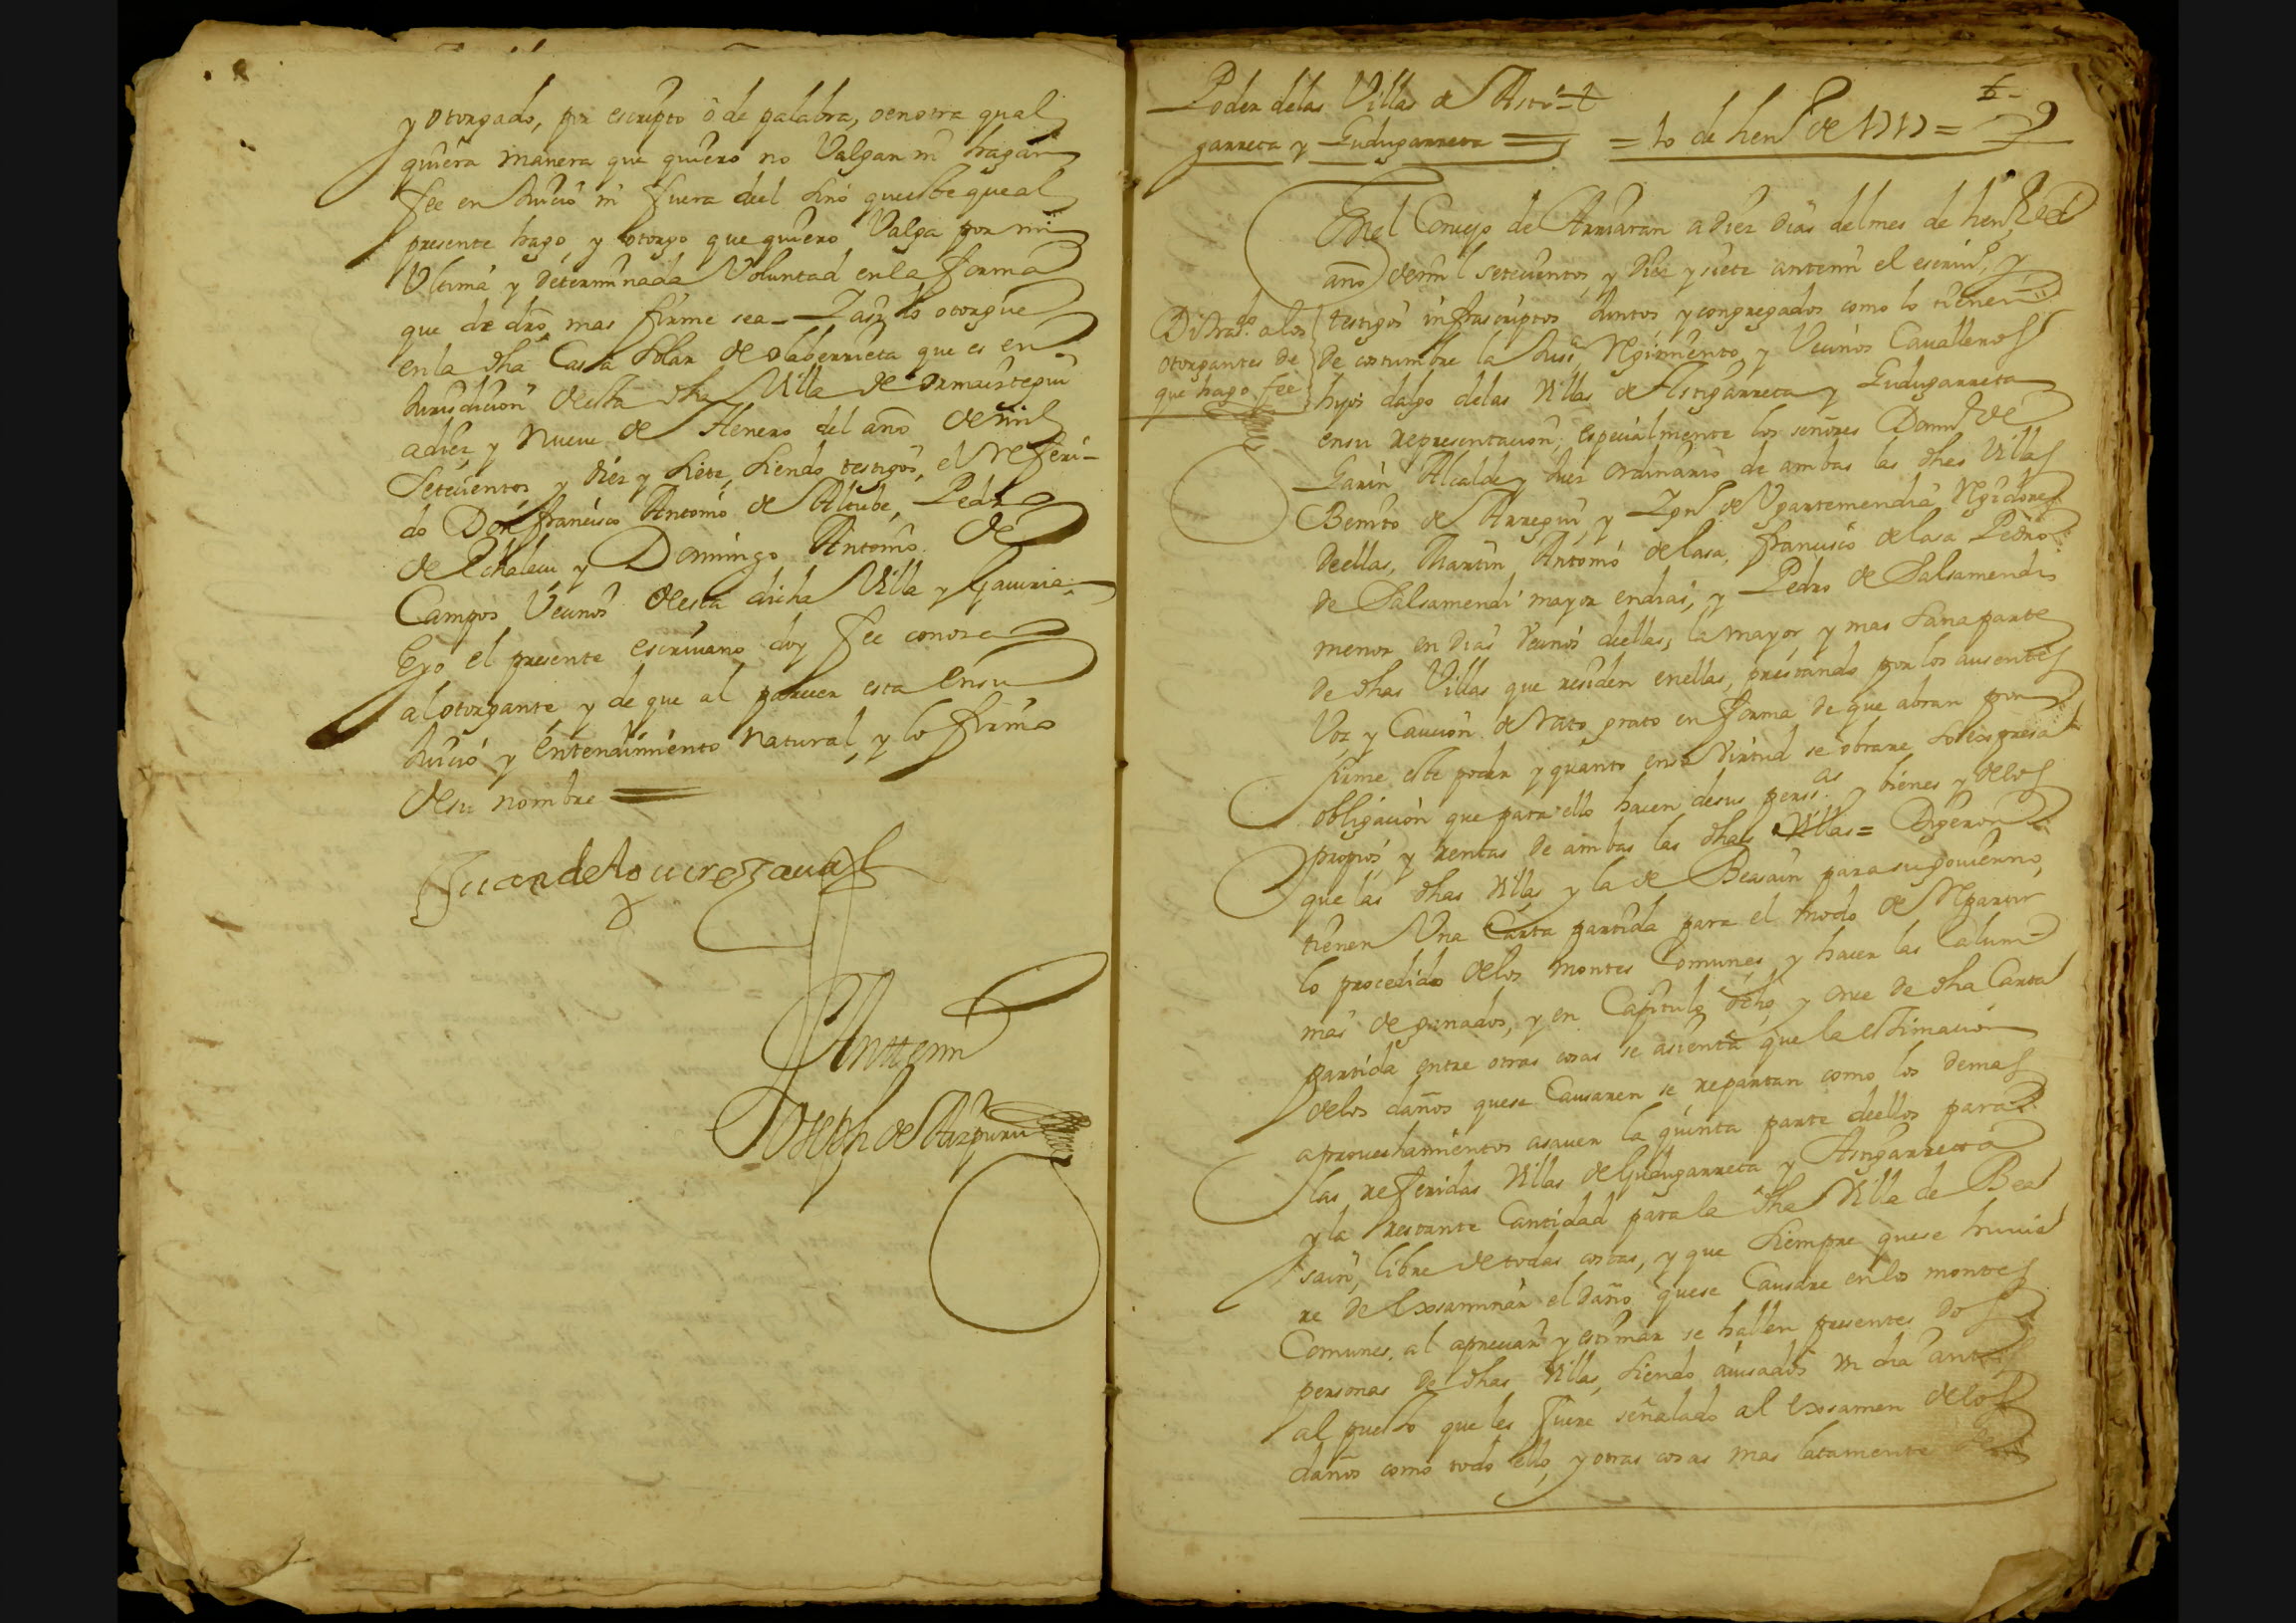 y otorgado, por escripto ô de palabra, o en otra qual
quiera manera que quiero no Valgan ni hagan
fee en Juicio ni fuera deel sino que este que al
presente hago, y otorgo que quiero Valga por mi
Ultima y determinada Voluntad en la forma
que de dro mas firme sea - Y asi lo otorgue
en la dha Cassa Solar de olaberrieta que es en
Jurisdicion desta dha Villa de ormaiztegui
a diez y nueve de Henero del año de mil
Setecientos y diez y siete, siendo testigos, el referi-
do Don francisco Antonio de Altube, Pedro
de Echalecu y Domingo Antonio de
Campos Vecinos desta dicha Villa y Gaviria
E yo el presente escrivano doy fee conozco
al otorgante y de que al parecer esta en su
Juicio y entendimiento natural, y lo firmo
de su nombre
Juan de
Anttemi
Joseph de Aizpuru
Poder de las Villas de Asti-
garreta y Gudugarreta
= 10 de henº de 1717 =
6
En el Concejo de Arriaran a diez dias del mes de henº del
año de mil setecientos y diez y siete ante mi el escrivº y
testigos infrascriptos Juntos y congregados como lo tienen
de costumbre la Justª Regimiento y Vecinos Cavalleros
hijos dalgo de las Villas de Astigarreta y Gudugarreta
en su representacion, especialmente los señores Domº de
Garin Alcalde y Juez ordinario de ambas las dhas Villas
Benito de Arregui, y Ygnº de Ugartemendia Regidores
de ellas, Martin Antonio de lasa, francisco de lasa Pedro
de Salsamendi mayor en dias, y Pedro de Salsamendi
menor en dias Vecinos de ellas, la mayor y mas sana parte
de dhas Villas que residen en ellas, prestando por los ausentes
Voz y Caucion de rato grato en forma de que abran por
firme este poder y quanto en su Virtud se obrare so expresa
obligacion que para ello hacen de sus persas y bienes y de los
propios y rentas de ambas las dhas Villas = Dijeron
que las dhas Villas y la de Beasain para su govierno,
tienen Una Carta partida para el modo de Reparar
lo procedido de los montes Comunes y hacer las Calum-
mas de ganados, y en Capitulo ocho y once de dha Carta
partida entre otras cosas se asienta que la estimacion
de los daños que se Causaren se repartan como los demas
aprovechamientos a saver la quinta parte de ellos para
las referidas Villas de Gudugarreta y Astigarreta
y la restante Cantidad para la dha Villa de Bea
sain, libre de todas costas, y que siempre que se huvie
re de Exsaminar el daño que se Causare en los montes
Comunes, al apreciar y estimar se hallen presentes dos
personas de dhas Villas, siendo avisados un dia antes
al puesto que les fuere señalado al Exsamen de los
daños como todo ello, y otras cosas mas latamente
a los
otorgantes de
que hago fee